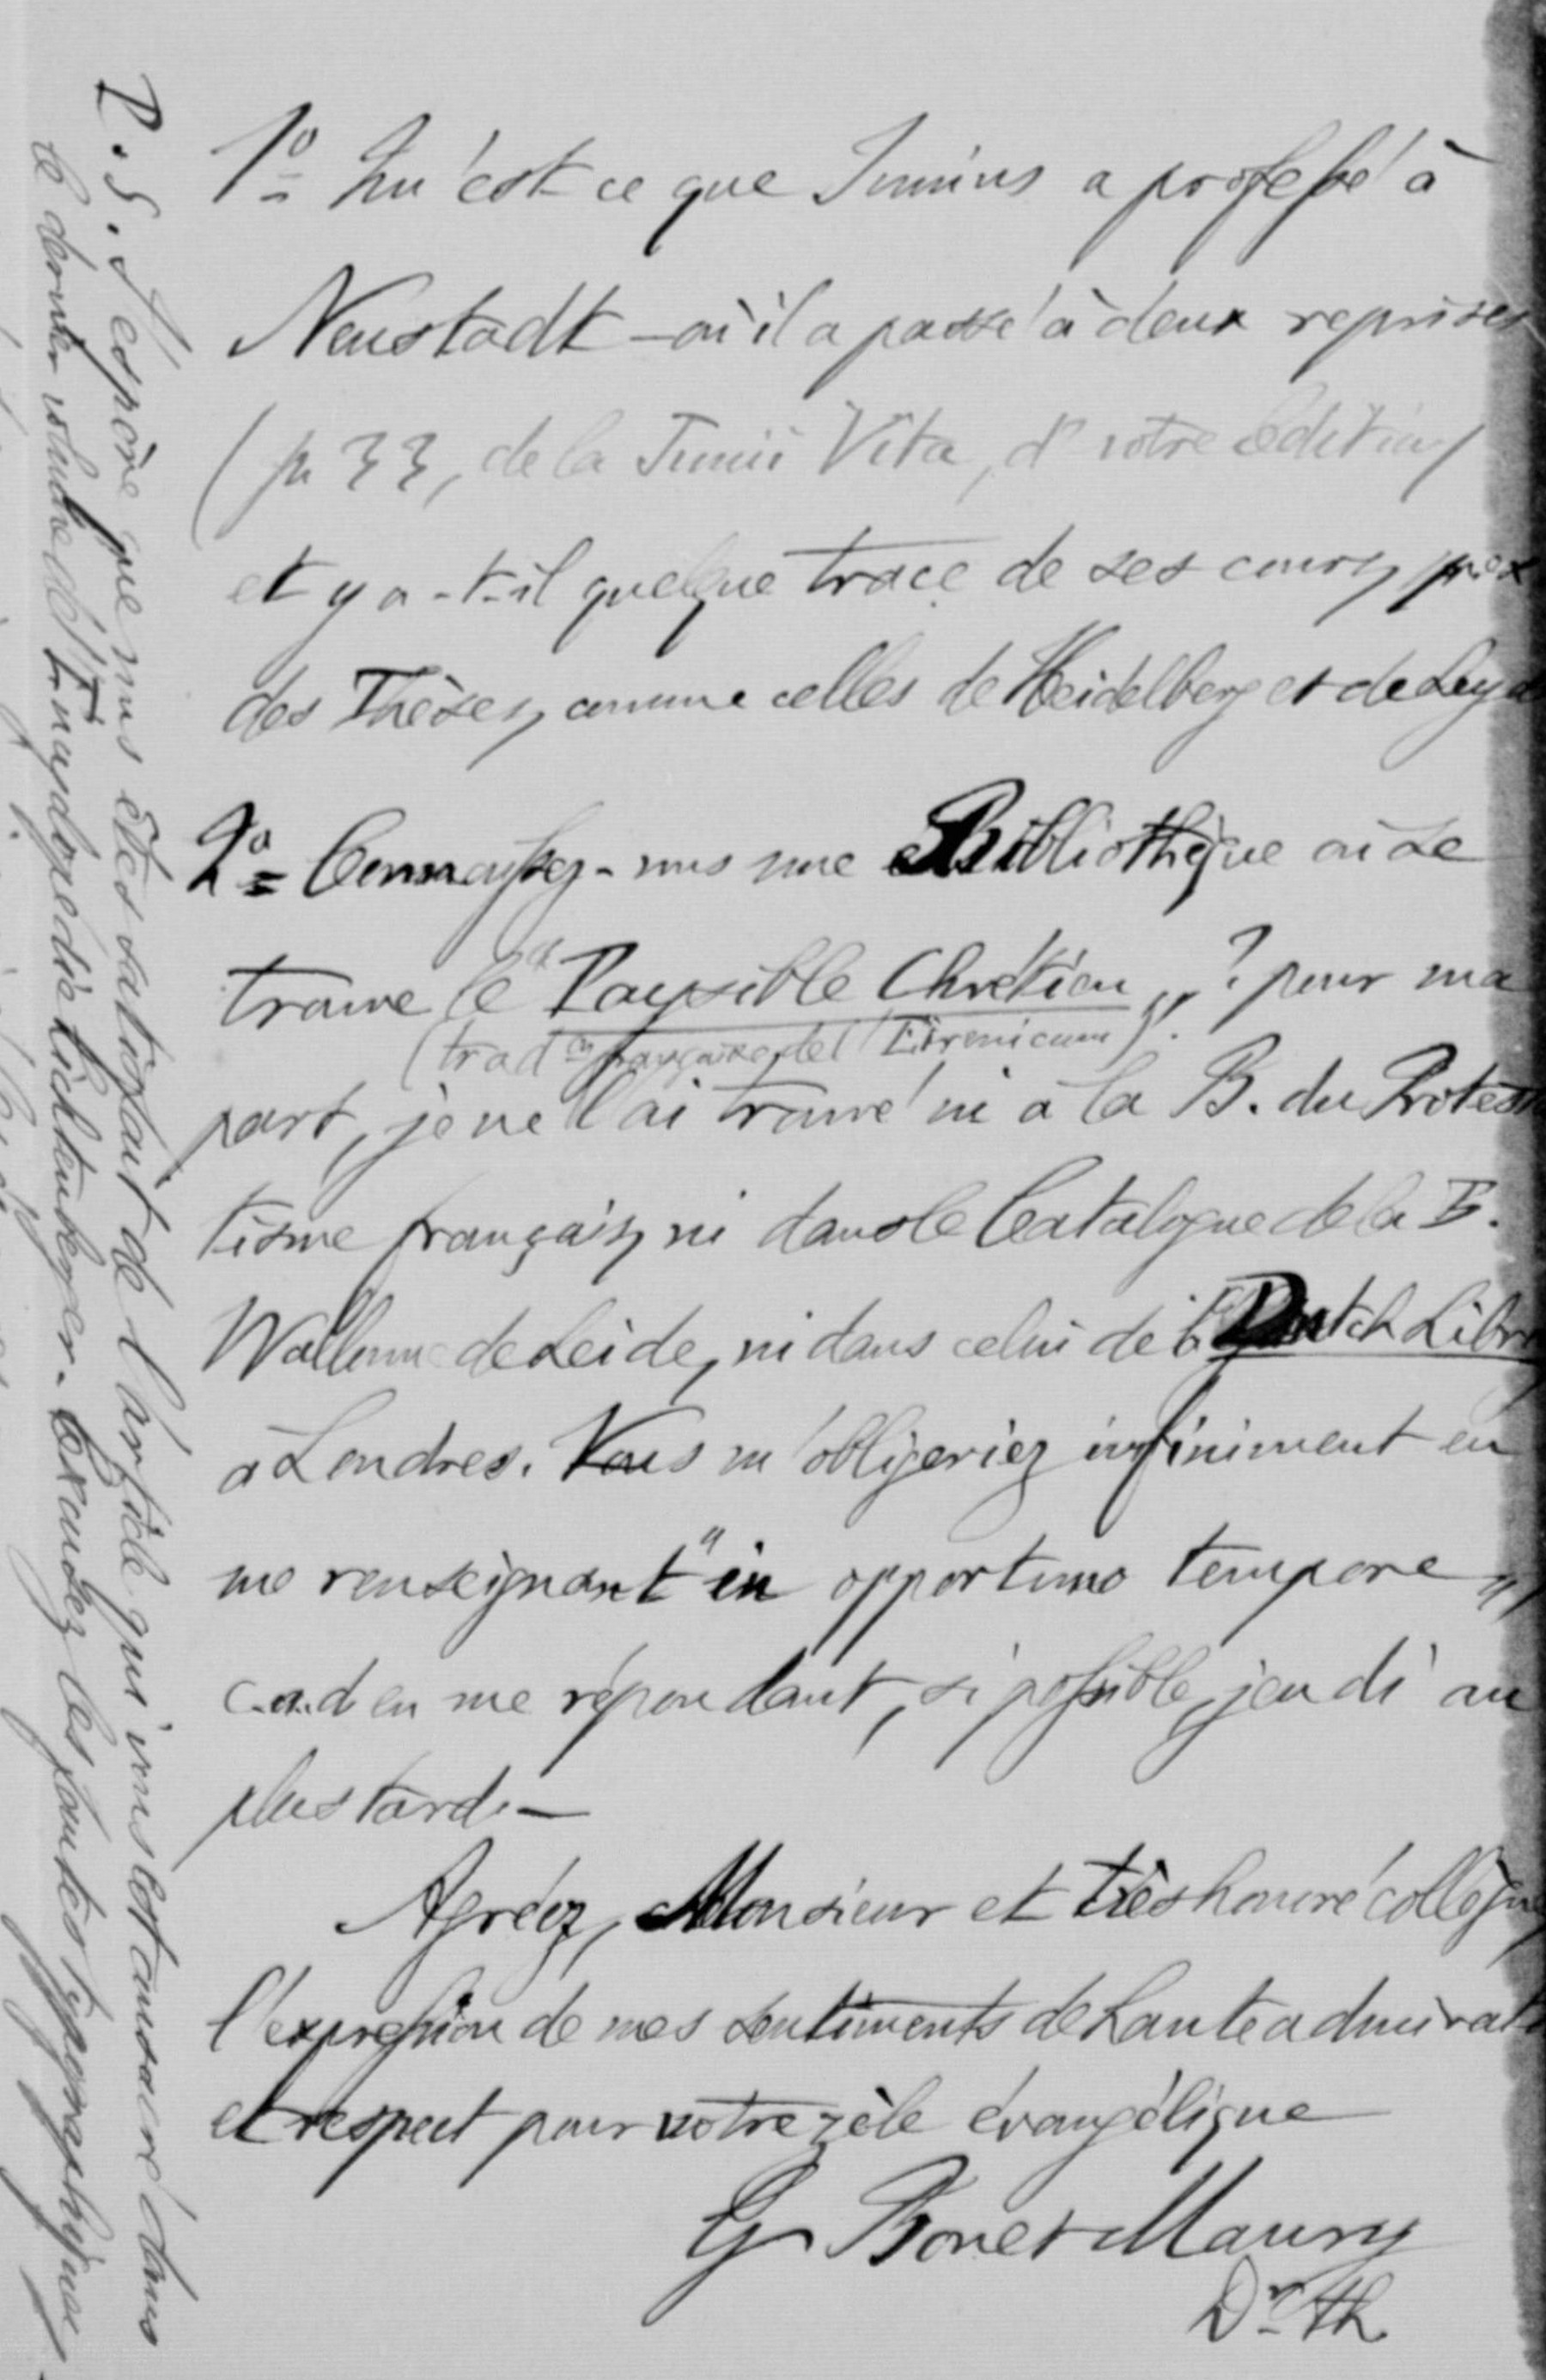 1º Qu'est ce que Junius a professé à
Neustadt – où il a passé à deux reprises
(p 33, de la Junii Vita, dº votre édition)
et y a-t-il quelque trace de ses cours, p. ex
des Thèses, comme celles de Heidelberg et de Leyde
2º Connaissez-vous une Bibliothèque où se
trouve le "Paysible Chrétien„ ? pour ma
(tradon française de l'Eirenicum)
part, je ne l'ai trouvé ni à la B. du Protes
tisme français, ni dans le Catalogue de la B.
Wallonne de Leide, ni dans celui de la Dutch Libr
à Londres. Vous m'obligeriez infiniment en
me renseignant "in opportuno tempore„
c.a.d en me répondant, si possible, jeudi au
plus tard. –
Agréez, Monsieur et très honoré collègue
l'expression de mes sentiments de haute admirat
et respect pour votre zèle évangélique
G Bonet-Maury
Dr Th
P.S. J'espère que vous êtes satisfait de l'article qui vous est consacré dans
le dernier volume de l'Encyclopédie Lichtenberger. Excusez les fautes typographiques